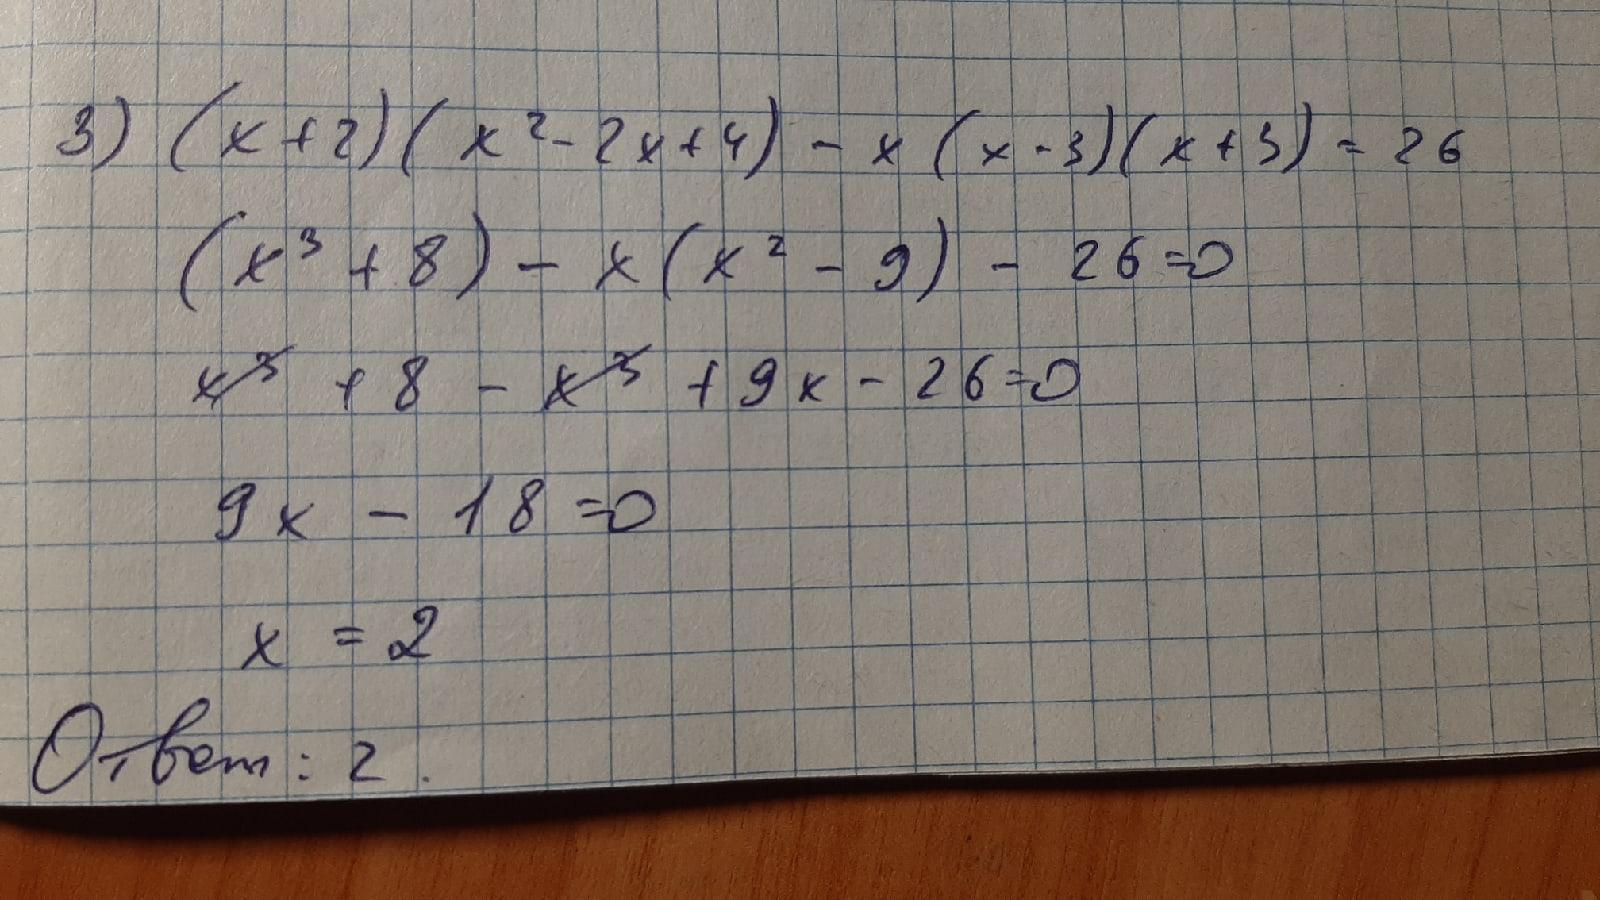 3) (x+2)(x²-2x+4) - x(x-3)(x+3) = 26
(x³+8) - x(x²-9) - 26=0
x³ + 8 - x³ + 9x - 26=0
9x - 18=0
x = 2
Ответ: 2.